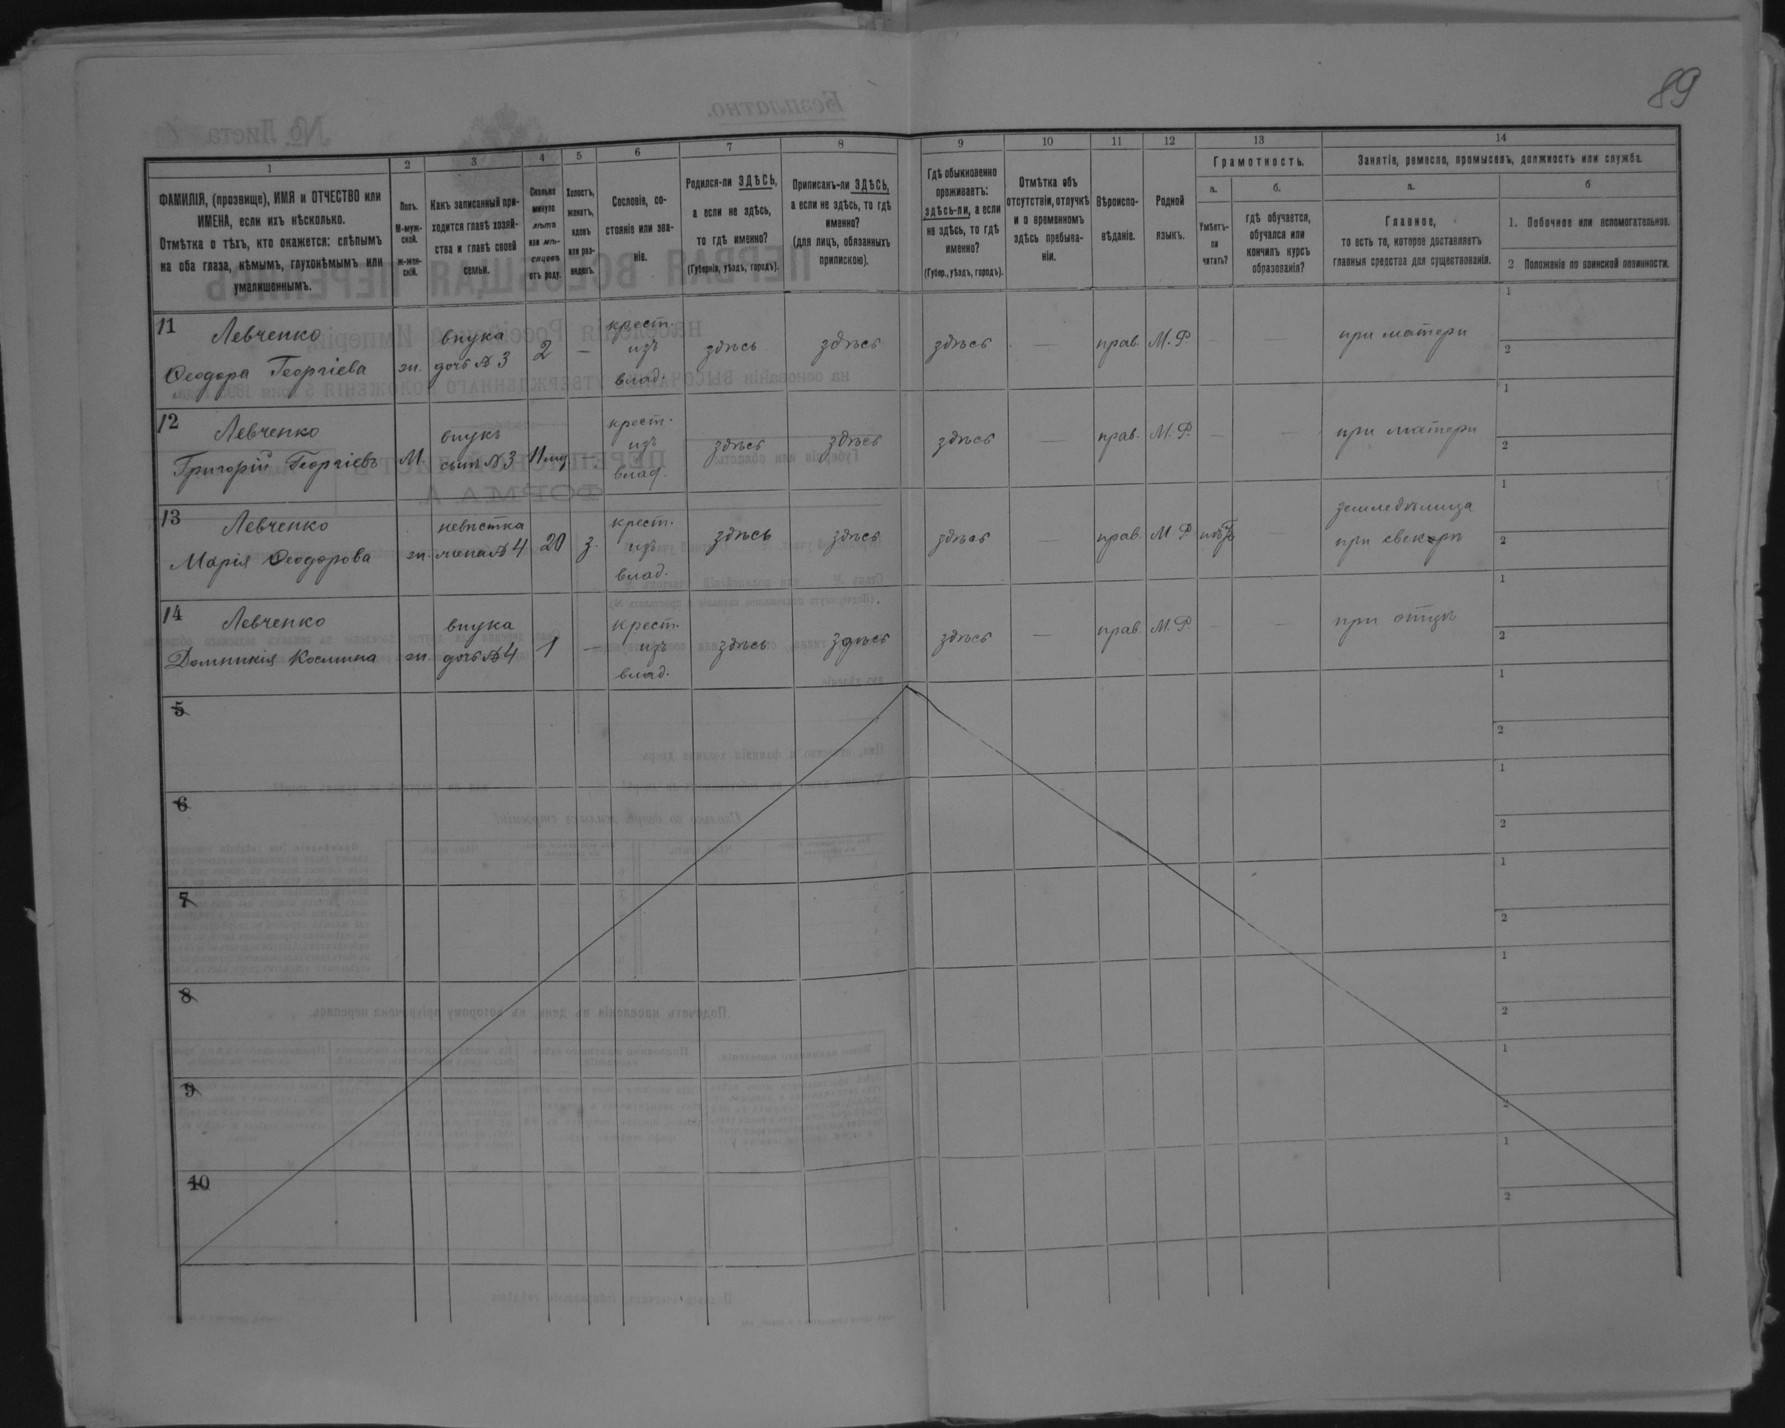 89
1
2
3
4
5
6
7
8
9
10
11
12
13
14
ФАМИЛІЯ, (прозвище), ИМЯ и ОТЧЕСТВО или
ИМЕНА, если ихъ нѣсколько.
Отмѣтка о тѣхъ, кто окажется: слѣпымъ
на оба глаза, нѣмымъ, глухонѣмымъ или
умалишеннымъ.
Полъ.
М-муж-
ской.
ж-жен-
скій.
Какъ записанный при-
ходится главѣ хозяй-
ства и главѣ своей
семьи.
Сколько
минуло
лѣтъ
или мѣ-
сяцевъ
отъ роду.
Холостъ,
женатъ,
вдовъ
или раз-
веденъ.
Сословіе, со-
стояніе или зва-
ніе.
Родился-ли ЗДѢСЬ,
а если не здѣсь,
то гдѣ именно?
(Губернія, уѣздъ, городъ).
Приписанъ-ли ЗДѢСЬ,
а если не здѣсь, то гдѣ
именно?
(для лицъ, обязанныхъ
припискою).
Гдѣ обыкновенно
проживаетъ:
здѣсь-ли, а если
не здѣсь, то гдѣ
именно?
(Губер., уѣздъ, городъ).
Отмѣтка объ
отсутствіи, отлучкѣ
и о временномъ
здѣсь пребыва-
ніи.
Вѣроиспо-
вѣданіе.
Родной
языкъ.
Грамотность.
а.
Умѣетъ-
ли
читать?
б.
гдѣ обучается,
обучался или
кончилъ курсъ
образованія?
Занятіе, ремесло, промыселъ, должность или служба.
а.
Главное,
то есть то, которое доставляетъ
главныя средства для существованія.
б
1. Побочное или вспомогательное.
2 Положеніе по воинской повинности.
11
Левченко
Ѳеодора Георгіева
ж.
внука
дочь №3
2
—
крест.
изъ
влад.
здѣсь
здѣсь
здѣсь
—
прав.
М. Р.
-
—
при матери
1
2
12
Левченко
Григорій Георгіевъ
М.
внукъ
сынъ №3
11 мц
—
крест.
изъ
влад.
здѣсь
здѣсь
здѣсь
—
прав.
М. Р.
—
—
при матери
1
2
13
Левченко
Марія Ѳеодорова
ж.
невѣстка
жена №4
20
з.
крест.
изъ
влад.
здѣсь
здѣсь
здѣсь
—
прав.
М. Р.
нѣтъ
—
земледѣлица
при свекрѣ
1
2
14
Левченко
Домникія Космина
ж.
внука
дочь №4
1
—
крест.
изъ
влад.
здѣсь
здѣсь
здѣсь
—
прав.
М. Р.
-
—
при отцѣ
1
2
5
1
2
6
1
2
7
1
2
8
1
2
9
1
2
10
1
2